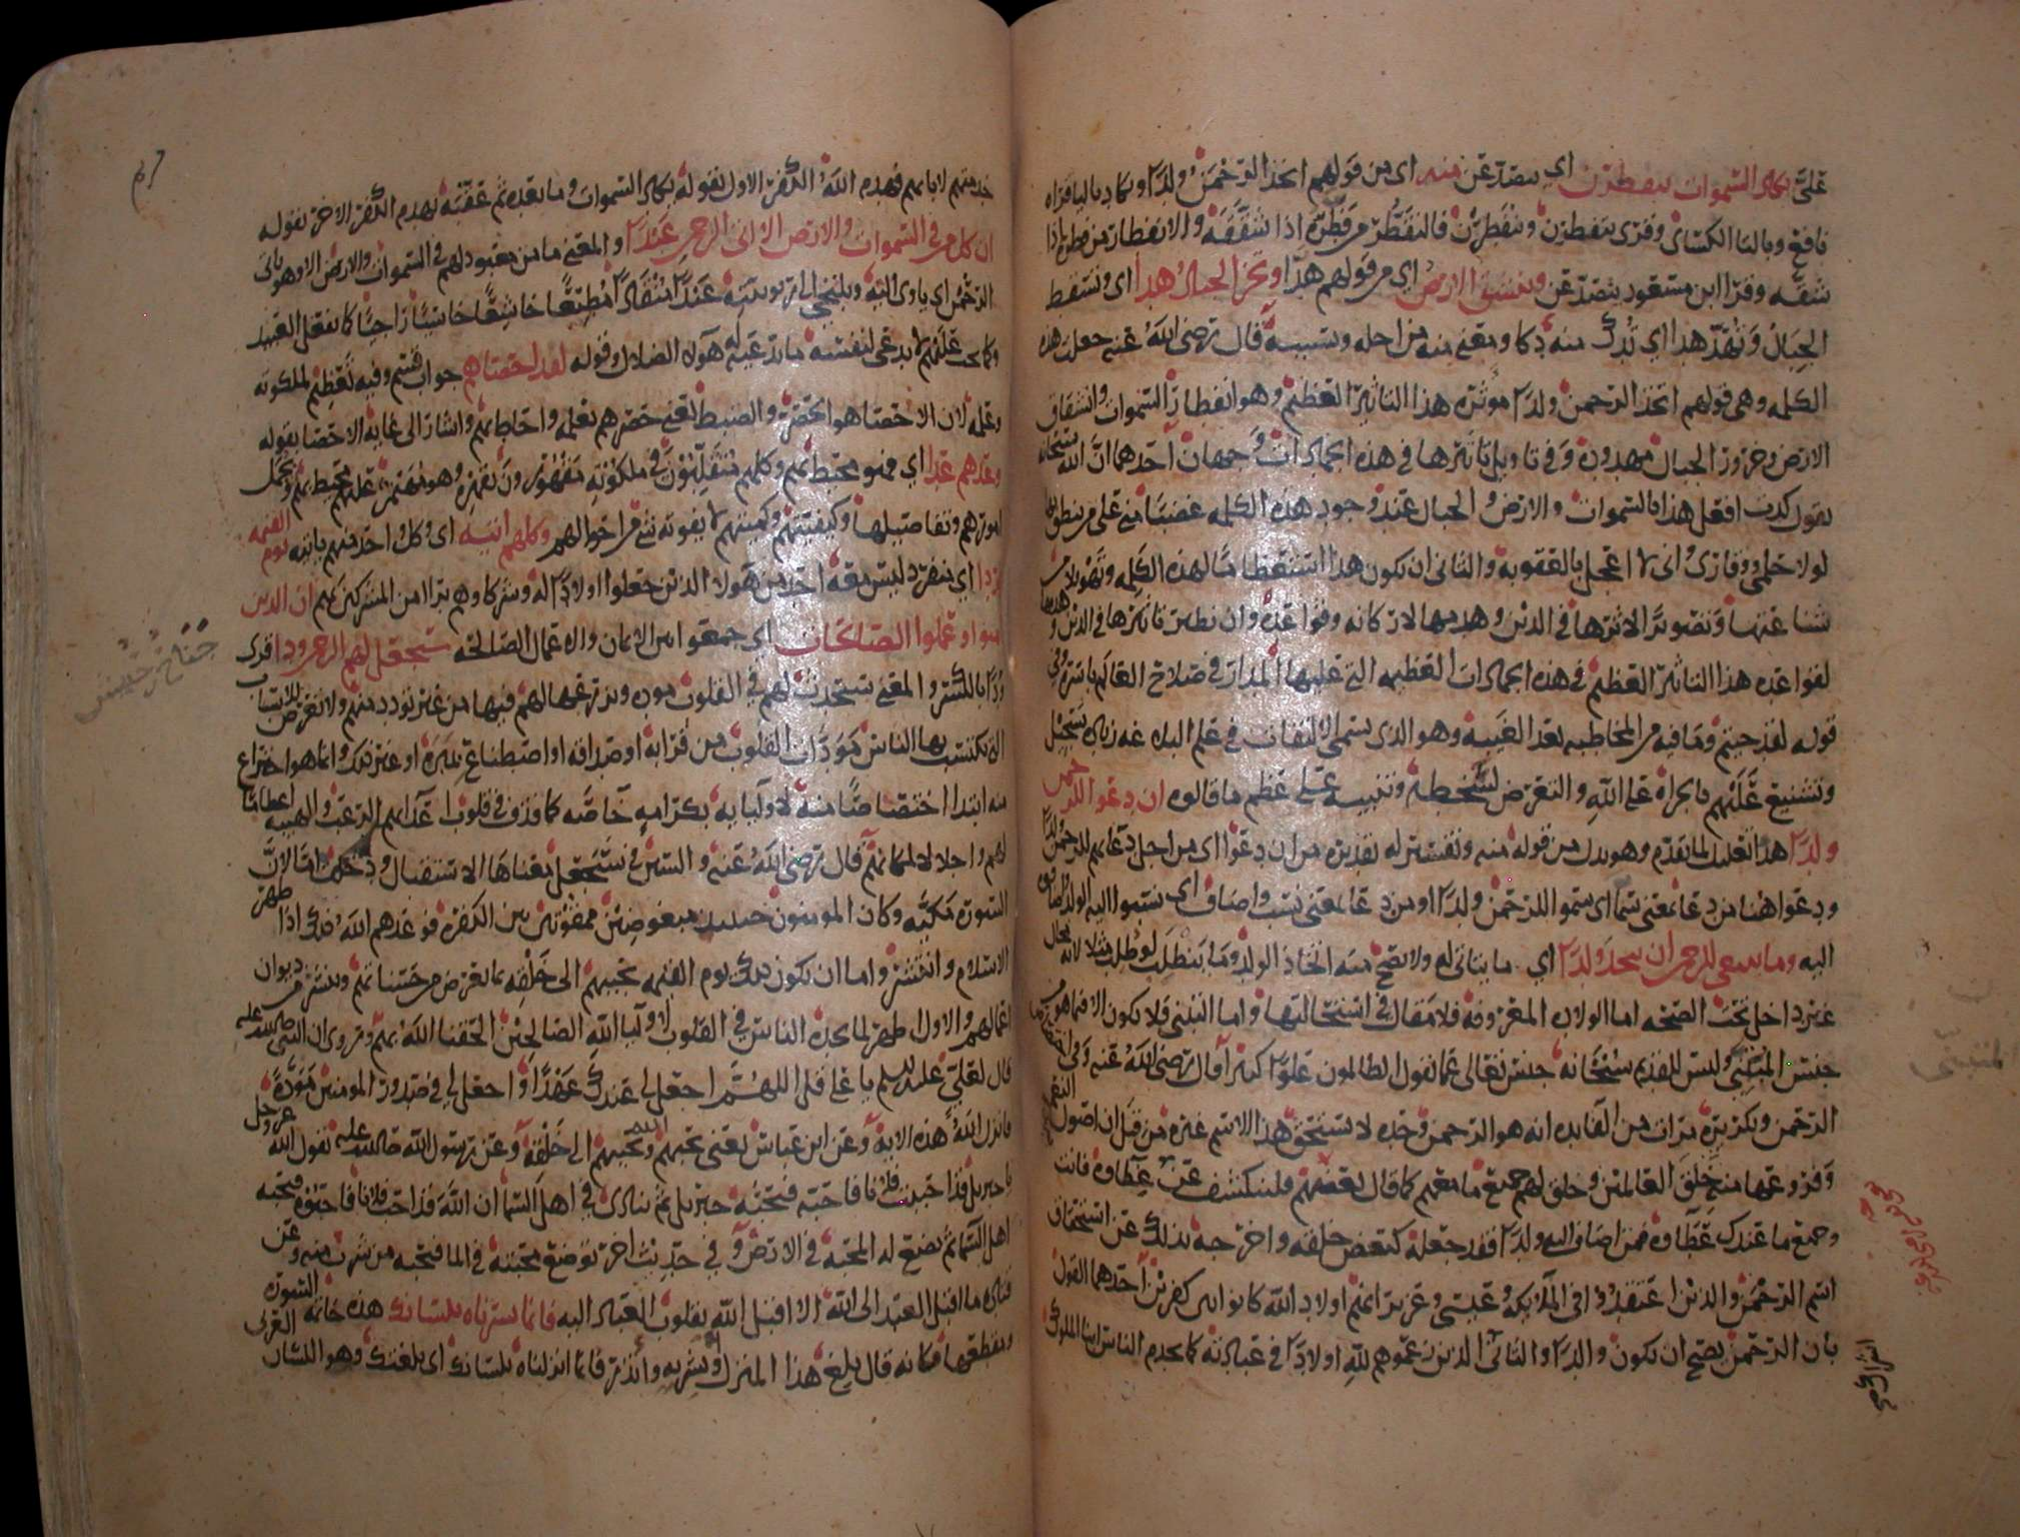 على تكاد السموات يتفطرن اي يتصدعن منه اي من قولهم اتخذ الرحمن ولدا ويكاد باليا قراه
نافع وبالتا الكسائي وقرئ يتفطرن وينفطرن فالتفطر من فطره اذا شققه والانفطار من فطره اذا
شقه وقرا ابن مسعود يتصدعن وتنشق الارض اي من قولهم هذا وتخر الجبال هدا اي وتسقط
الجبال وتهد هدا اي تدك منه دكا ومعنى منه من اجله وبسببه قال رضي الله عنه جعلت هذه
الكلمه وهي قولهم اتخذ الرحمن ولدا موثره هذا التاثير العظيم وهو انفطار السموات وانشقاق
الارض وخرور الجبال مهدوده وفي تاويل تاثيرها في هذه الجمادات وجهان احدهما ان الله سبحانه
يقول كدت افعل هذا بالسموات والارض والجبال عند وجود هذه الكلمه غضبا مني على من نطق بها
لولا حلمي ووقاري واني لا اعجل بالعقوبه والثاني ان يكون هذا استعظاما لهذه الكلمه وتهويلا من
شناعتها وتصويرا لاثرها في الدين وهدمها لاركانه وقواعده وان نظير تاثيرها في الدين وهدمها
لقواعده هذا التاثير العظيم في هذه الجمادات العظيمه التي عليها المدار في صلاح العالم باسره وفي
قوله لقد جيتم وما فيه من المخاطبه بعد الغيبه وهو الذي يسمى الالتفات في علم البلاغه زياده تسجيل
وتشنيع عليهم بالجراه على الله والتعرض لسخطه وتنبيه على عظم ما قالوه ان دعوا للرحمن
ولدا هذا تعليل لما تقدم وهو بدل من قوله منه وتفسير له تقديره من ان دعوا اي من اجل دعايهم للرحمن ولدا
ودعوا هنا من دعا بمعنى سما اي سموا للرحمن ولدا او من دعا بمعنى نسب واضاف اي نسبوا اليه الولد
اليه وما ينبغي للرحمن ان يتخذ ولدا اي ما يتاتى له ولا يصح منه اتخاذ الولد وما ينطلب لو طلب مثلا لانه محال
غير داخل تحت الصحه اما الولاده المعروفه فلا مقال في استحالتها واما التبني فلا يكون الا فيما هو من
جنس المتبني وليس للقديم سبحانه جنس تعالى عما يقول الظالمون علوا كبيرا قال رضي الله عنه وفي
الرحمن وتكريره مرات من الفايده انه هو الرحمن وحده لا يستحق هذا الاسم غيره من قبل ان اصول النعم
وفروعها منه خلق العالمين وخلق لهم جميع ما معهم كما قال بعضهم فلينكشف عن بصرك غطاوه فانت
وجميع ما عندك عطاوه فمن اضاف اليه ولدا فقد جعله كبعض خلقه واخرجه بذلك عن استحقاق
اسم الرحمن والذين اعتقدوا في الملايكه وعيسى وعزير انهم اولاد الله كانوا بين كفرين احدهما القول
بان الرحمن يصح ان يكون والدا والثاني الذين زعموهم لله اولادا في عبادته كما يخدم الناس ابنا الملوك
خدمتهم لابايهم فهدم الله الكفر الاول بقوله تكاد السموات وما بعده ثم عقبه بهدم الكفر الاخر بقوله
ان كل من في السموات والارض الا اتى الرحمن عبدا والمعنى ما من معبود لهم في السموات والارض الا وهو ياتي
الرحمن اي ياوي اليه ويلتجي الى ربوبيته عبدا منقادا مطيعا خاشعا خاشيا راجيا كما يفعل العبيد
وكما يجب عليهم لا يدعي لنفسه ما يدعيه له هولا الضلال وقوله لقد احصاهم جواب قسم وفيه تعظيم لملكوته
وعلمه لان الاحصا هو الحصر والضبط يعني حصرهم بعلمه واحاط بهم واشار الى غايه الاحصا بقوله
وعدهم عدا اي فهو محيط بهم وكلهم متقلبون في ملكوته مقهورون بقهره وهو مهيمن عليهم محيط بهم وبجمل
امورهم وتفاصيلها وكيفيتهم وكميتهم لا يفوته شي من احوالهم وكلهم اتيه اي وكل واحد منهم ياتيه يوم القيمه
فردا اي منفرد ليس معه احد من هولا الذين جعلوا اولادا له وشركا وهم برا من المشركين بهم ان الذين
امنوا وعملوا الصالحات اي جمعوا بين الايمان والاعمال الصالحه سيجعل لهم الرحمن ودا قرئ
ودا بالكسر والمعنى سيحدث لهم في القلوب موده ويزرعها لهم فيها من غير تودد منهم ولا تعرض للاسباب
التي يكتسب بها الناس مودات القلوب من قرابه او صداقه او اصطناع مبره او غير ذلك وانما هو اختراع
منه ابتدا اختصاصا منه لاوليايه بكرامه خاصه كما قذف في قلوب اعدايهم الرعب والهيبه اعظاما
لهم واجلالا لمكانهم قال رضي الله عنه والسين في سيجعل معناها الاستقبال وذلك اما لان
السوره مكيه وكان المومنون حينيذ مبغوضين ممقوتين بين الكفره فوعدهم الله ذلك اذا ظهر
الاسلام وانتشر واما ان يكون ذلك يوم القيمه يحببهم الى خلقه بما يعرض من حسناتهم وينشر من ديوان
اعمالهم والاول اظهر لما يجده الناس في القلوب لاوليا الله الصالحين الحقنا الله بهم وروي ان النبي صلى الله عليه
قال لعلي عليه السلم يا علي قل اللهم اجعل لي عندك عهدا واجعل لي في صدور المومنين موده
فانزل الله هذه الايه وعن ابن عباس يعني يحبهم ويحببهم الله الى خلقه وعن رسول الله صلى الله عليه يقول الله عز وجل
يا جبريل قد احببت فلانا فاحبه فيحبه جبريل ثم ينادي في اهل السما ان الله قد احب فلانا فاحبوه فيحبه
اهل السما ثم يضع له المحبه في الارض وفي حديث اخر توضع محبته في الما فيحبه من شرب منه وعن
قتاده ما اقبل العبد الى الله الا اقبل الله بقلوب العباد اليه فانما يسرناه بلسانك هذه خاتمه السوره
ومقطعها فكانه قال بلغ هذا المنزل وبشر به وانذر فانما انزلناه بلسانك اي بلغتك وهو اللسان العربي